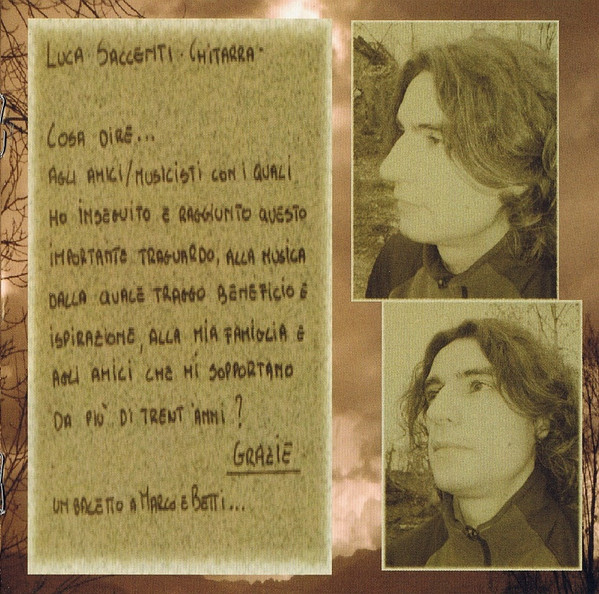 LUCA SACCENTI - CHITARRA -
COSA DIRE...
AGLI AMICI/MUSICISTI CON I QUALI
HO INSEGUITO E RAGGIUNTO QUESTO
IMPORTANTE TRAGUARDO, ALLA MUSICA
DALLA QUALE TRAGGO BENEFICIO E
ISPIRAZIONE, ALLA MIA FAMIGLIA E
AGLI AMICI CHE MI SOPPORTANO
DA PIÙ DI TRENT'ANNI?
GRAZIE
UN BACETTO A MARCO E BETTI...